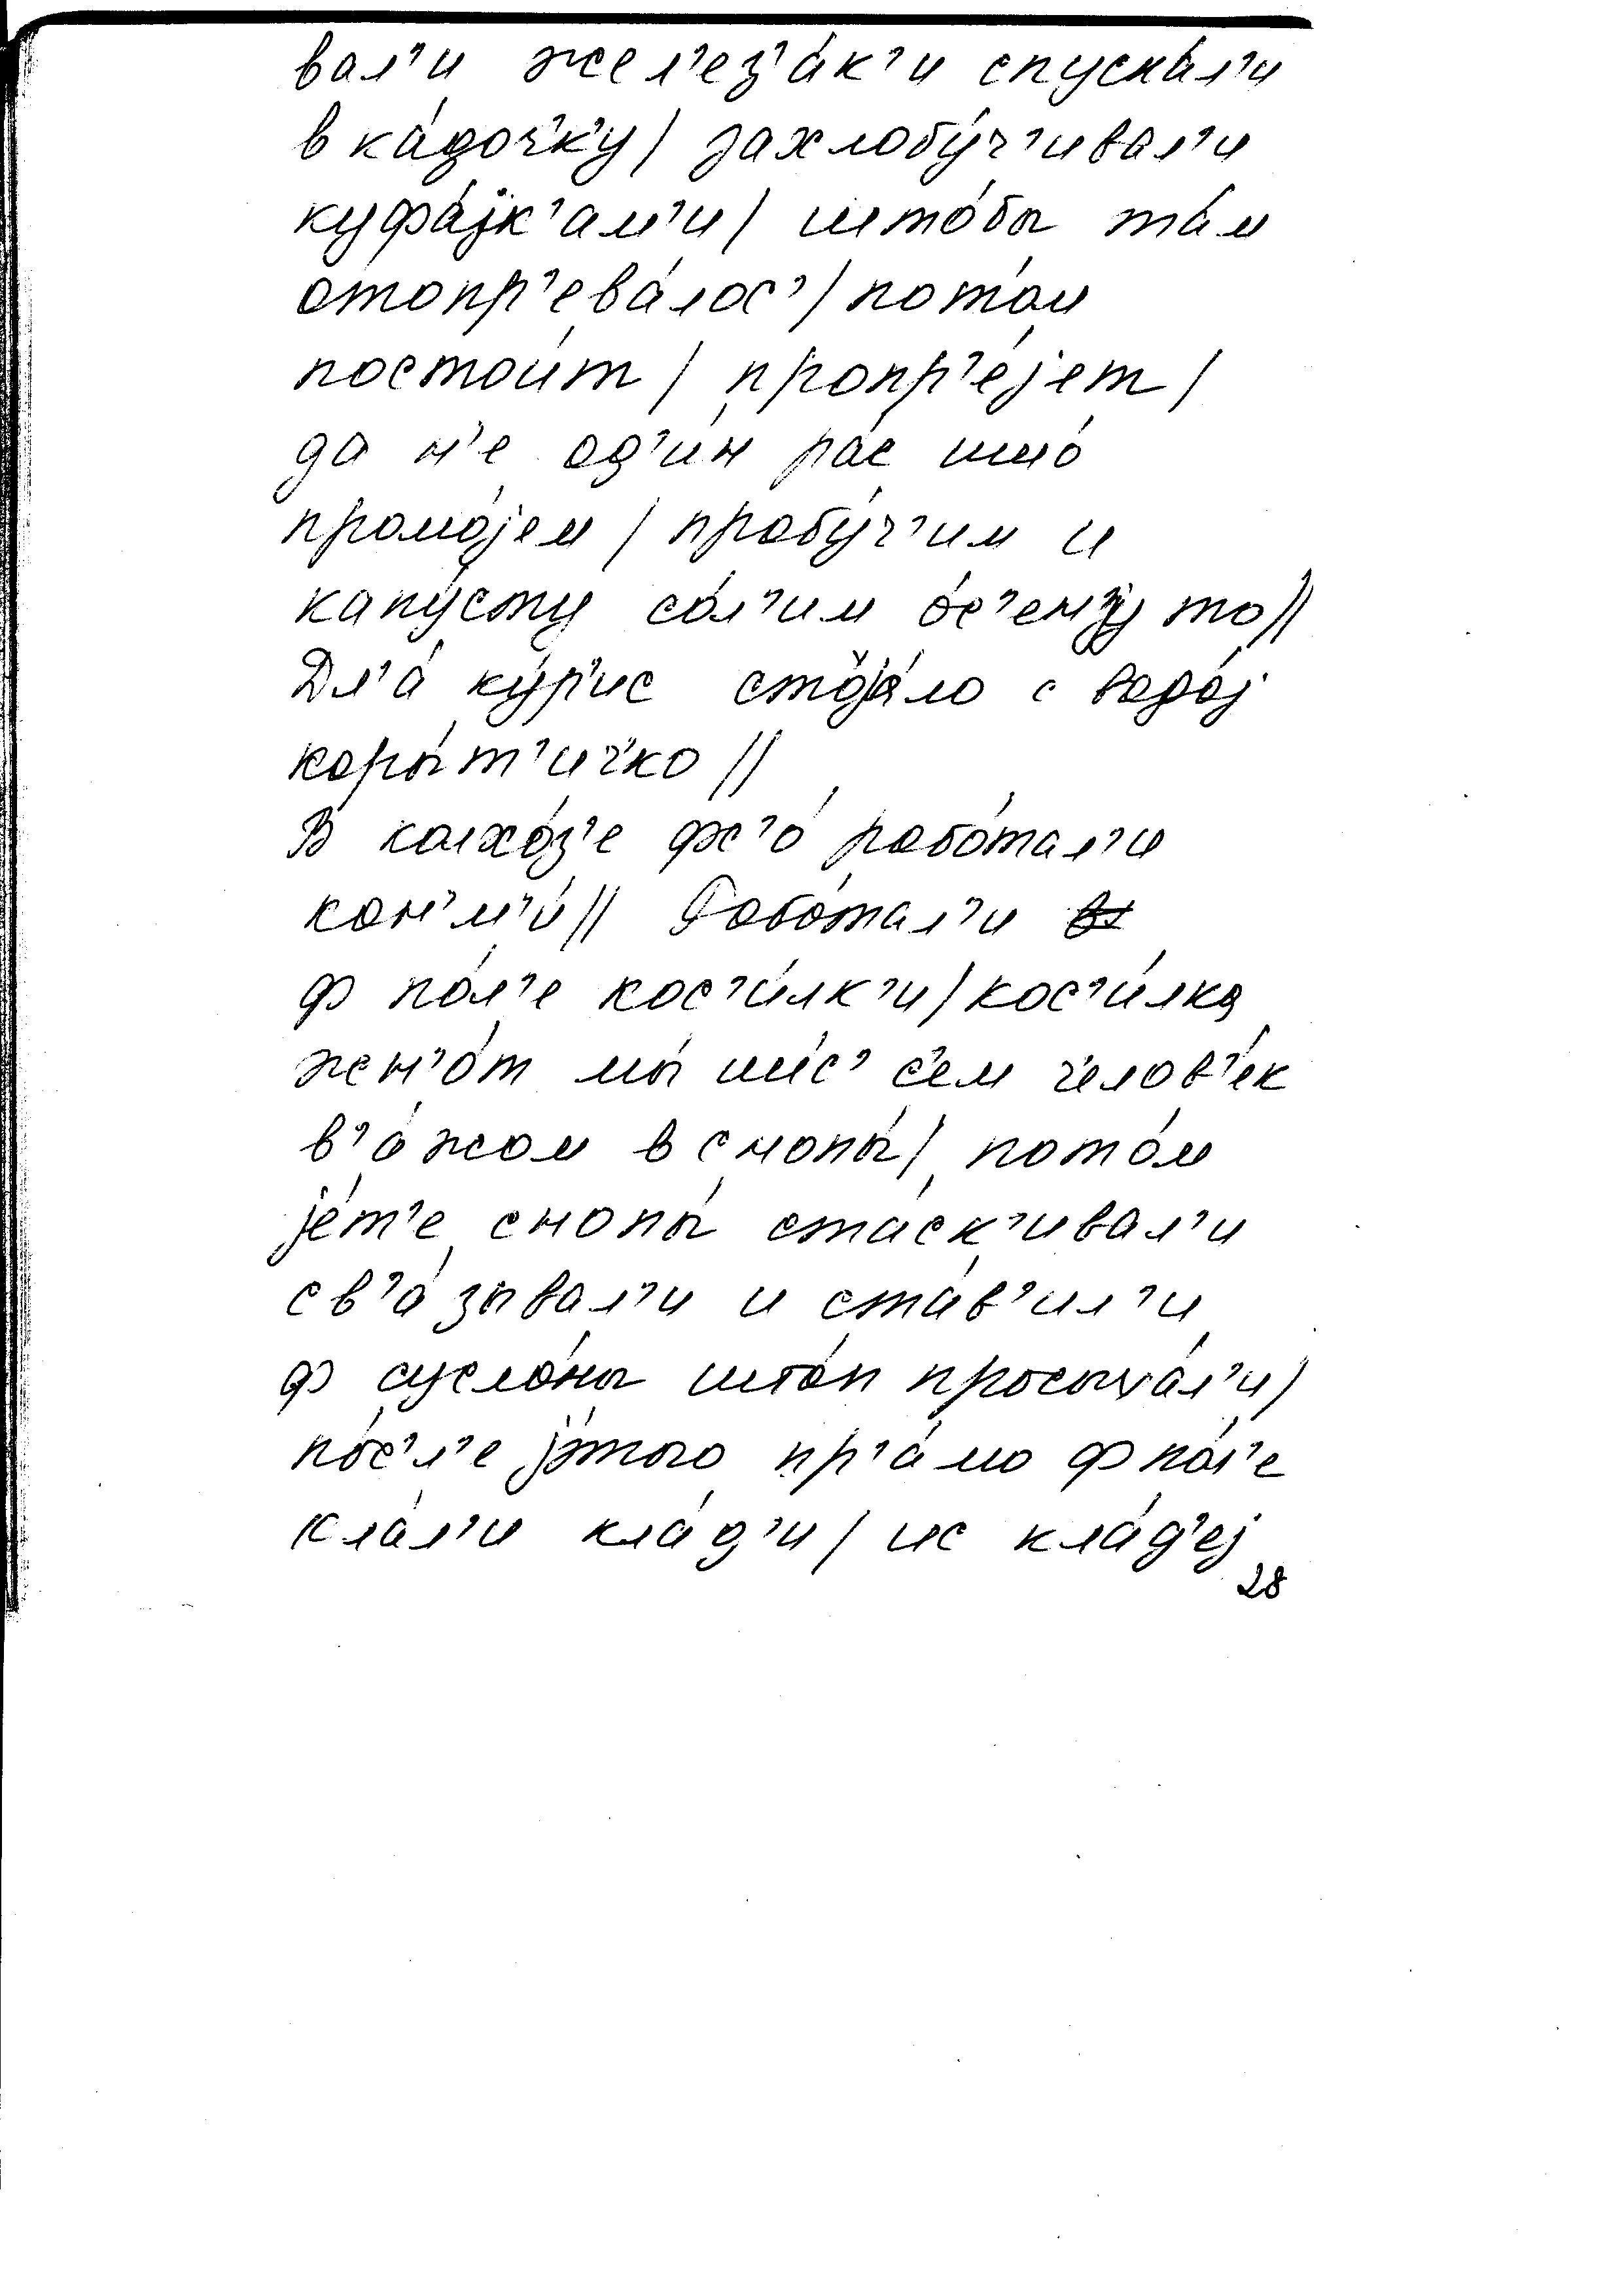 вал'и жел'ез'а́к'и спуска́л'и
в ка́доч'к'у / захлобу́ч'ивал'и
куфа́јк'ам'и / што́бы та́м
отопр'ева́лос' / пото́м
постои́т / пропр'е́јет /
да н'е од'и́н ра́с што́
промо́јем / пробу́ч'им и
капу́сту со́л'им о́с'енју то //
Дл'а́ ку́р'ис стоја́ло с водо́ј
коры́т'ич'ко //
В колхо́з'е фс'о́ робо́тал'и
кон'м'и́ // Робо́тал'и
ф по́л'е кос'и́лк'и / кос'и́лка
жн'о́т мы́ ше́с' с'ем ч'елов'е́к
в'а́жом в снопы́ / пото́м
је́т'е снопы́ ста́ск'ивал'и
св'а́зывал'и и ста́в'ил'и
ф сусло́ны што́п просыха́л'и /
по́с'л'е је́того пр'а́мо ф по́л'е
кла́л'и кла́д'и / ис кла́д'еј
28